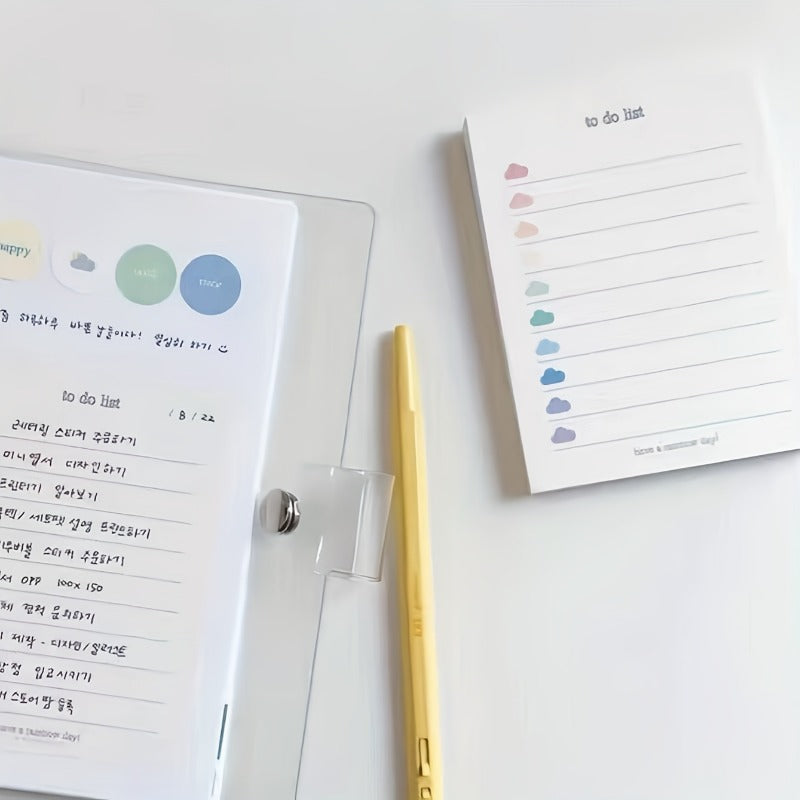 happy
바쁜 날들이다! 열심히 하기
to do list
/ 8 / 22
레터링 스티커 주문하기
미니엽서 디자인하기
프린터기 알아보기
/ 세로팻 설명 프린트하기
스티커 주문하기
OPP 100x150
견적 문의하기
제작 - 디자인/일러스트
입고시키기
스토어팜 등록
have a rainbow day!
to do list
have a rainbow day!